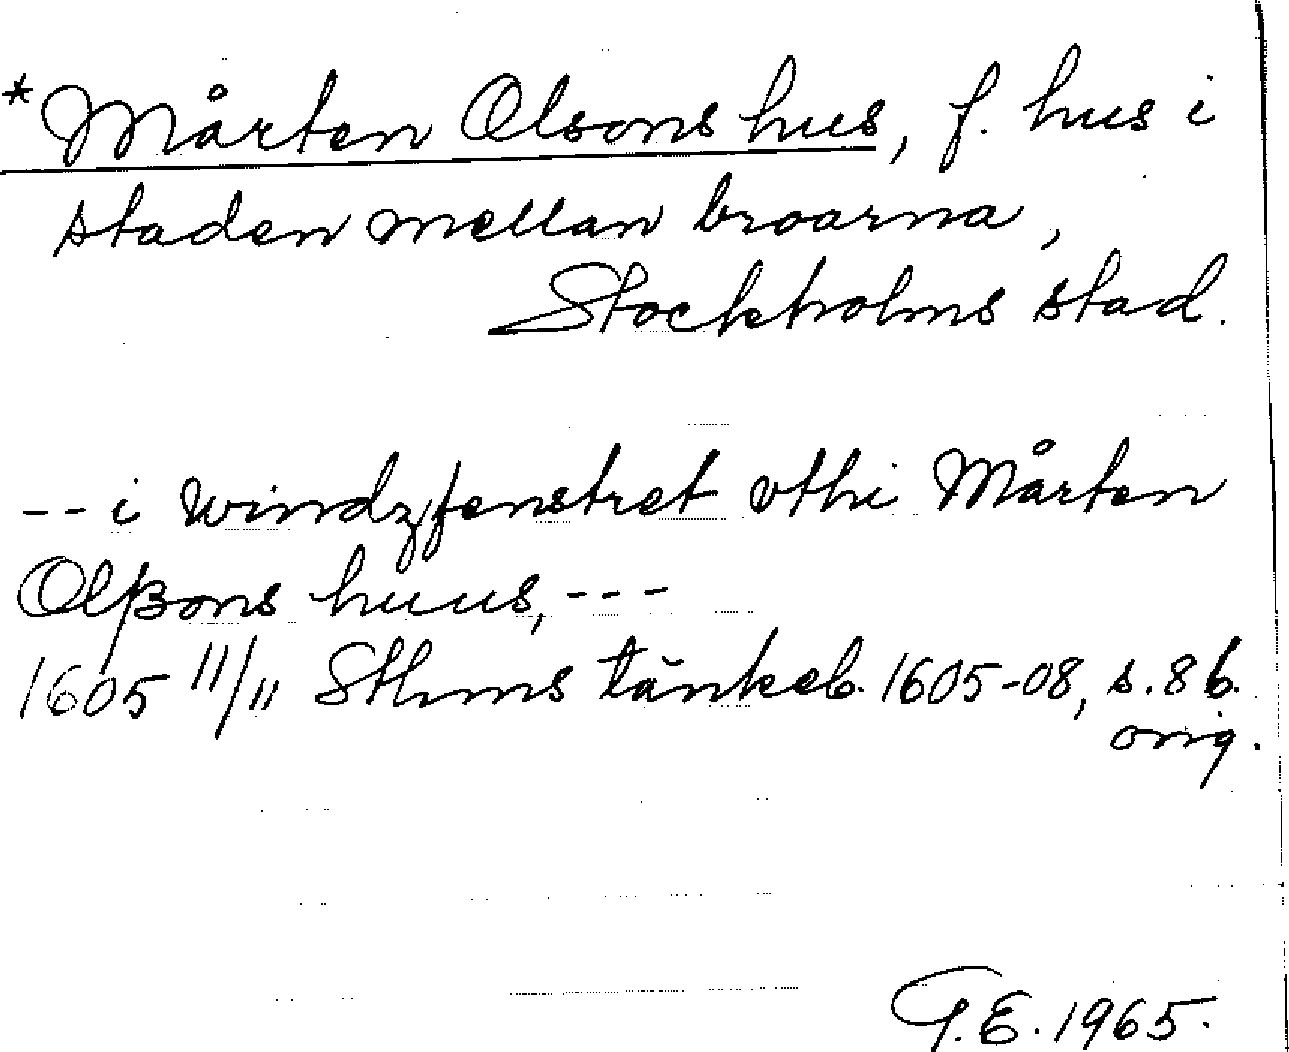 *Mårten Olsons hus, f. hus i
staden mellan broarna,
Stockholms stad.
-- i windzfenstret vthi Mårten
Olßons huus, ---
1605 11/11 Sthms tänkeb. 1605-08, s. 86.
orig.
G.E. 1965.